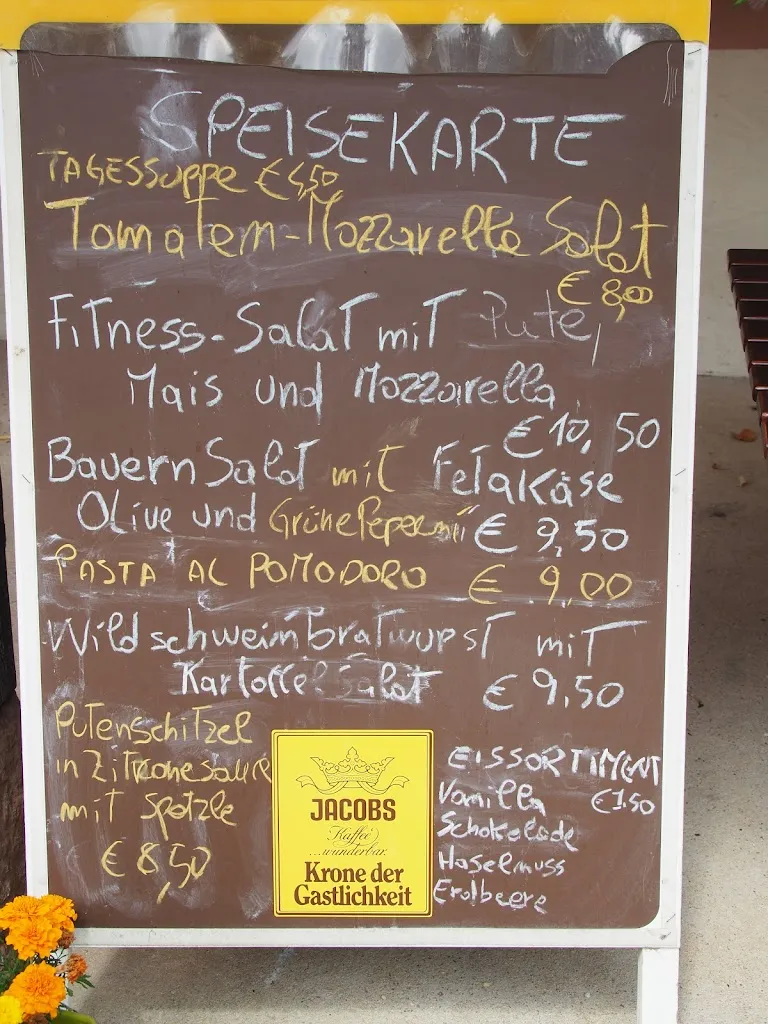 SPEISEKARTE
TAGESSUPPE € 4,50
Tomaten-Mozzarella Salat
€ 8,00
FiTness-Salat mit Pute,
Mais und Mozzarella
€ 10,50
Bauern Salat mit FetaKäse
Olive und Grüne Peperoni € 9,50
PASTA AL POMODORO € 9.00
Wildschweinbratwurst mit
Kartoffelsalat € 9,50
Putenschitzel
in Zitronesauce
mit Spätzle
€ 8,50
JACOBS
Kaffee
...wunderbar.
Krone der
Gastlichkeit
EISSORTIMENT
Vanilla € 1.50
Schokolade
Haselnuss
Erdbeere